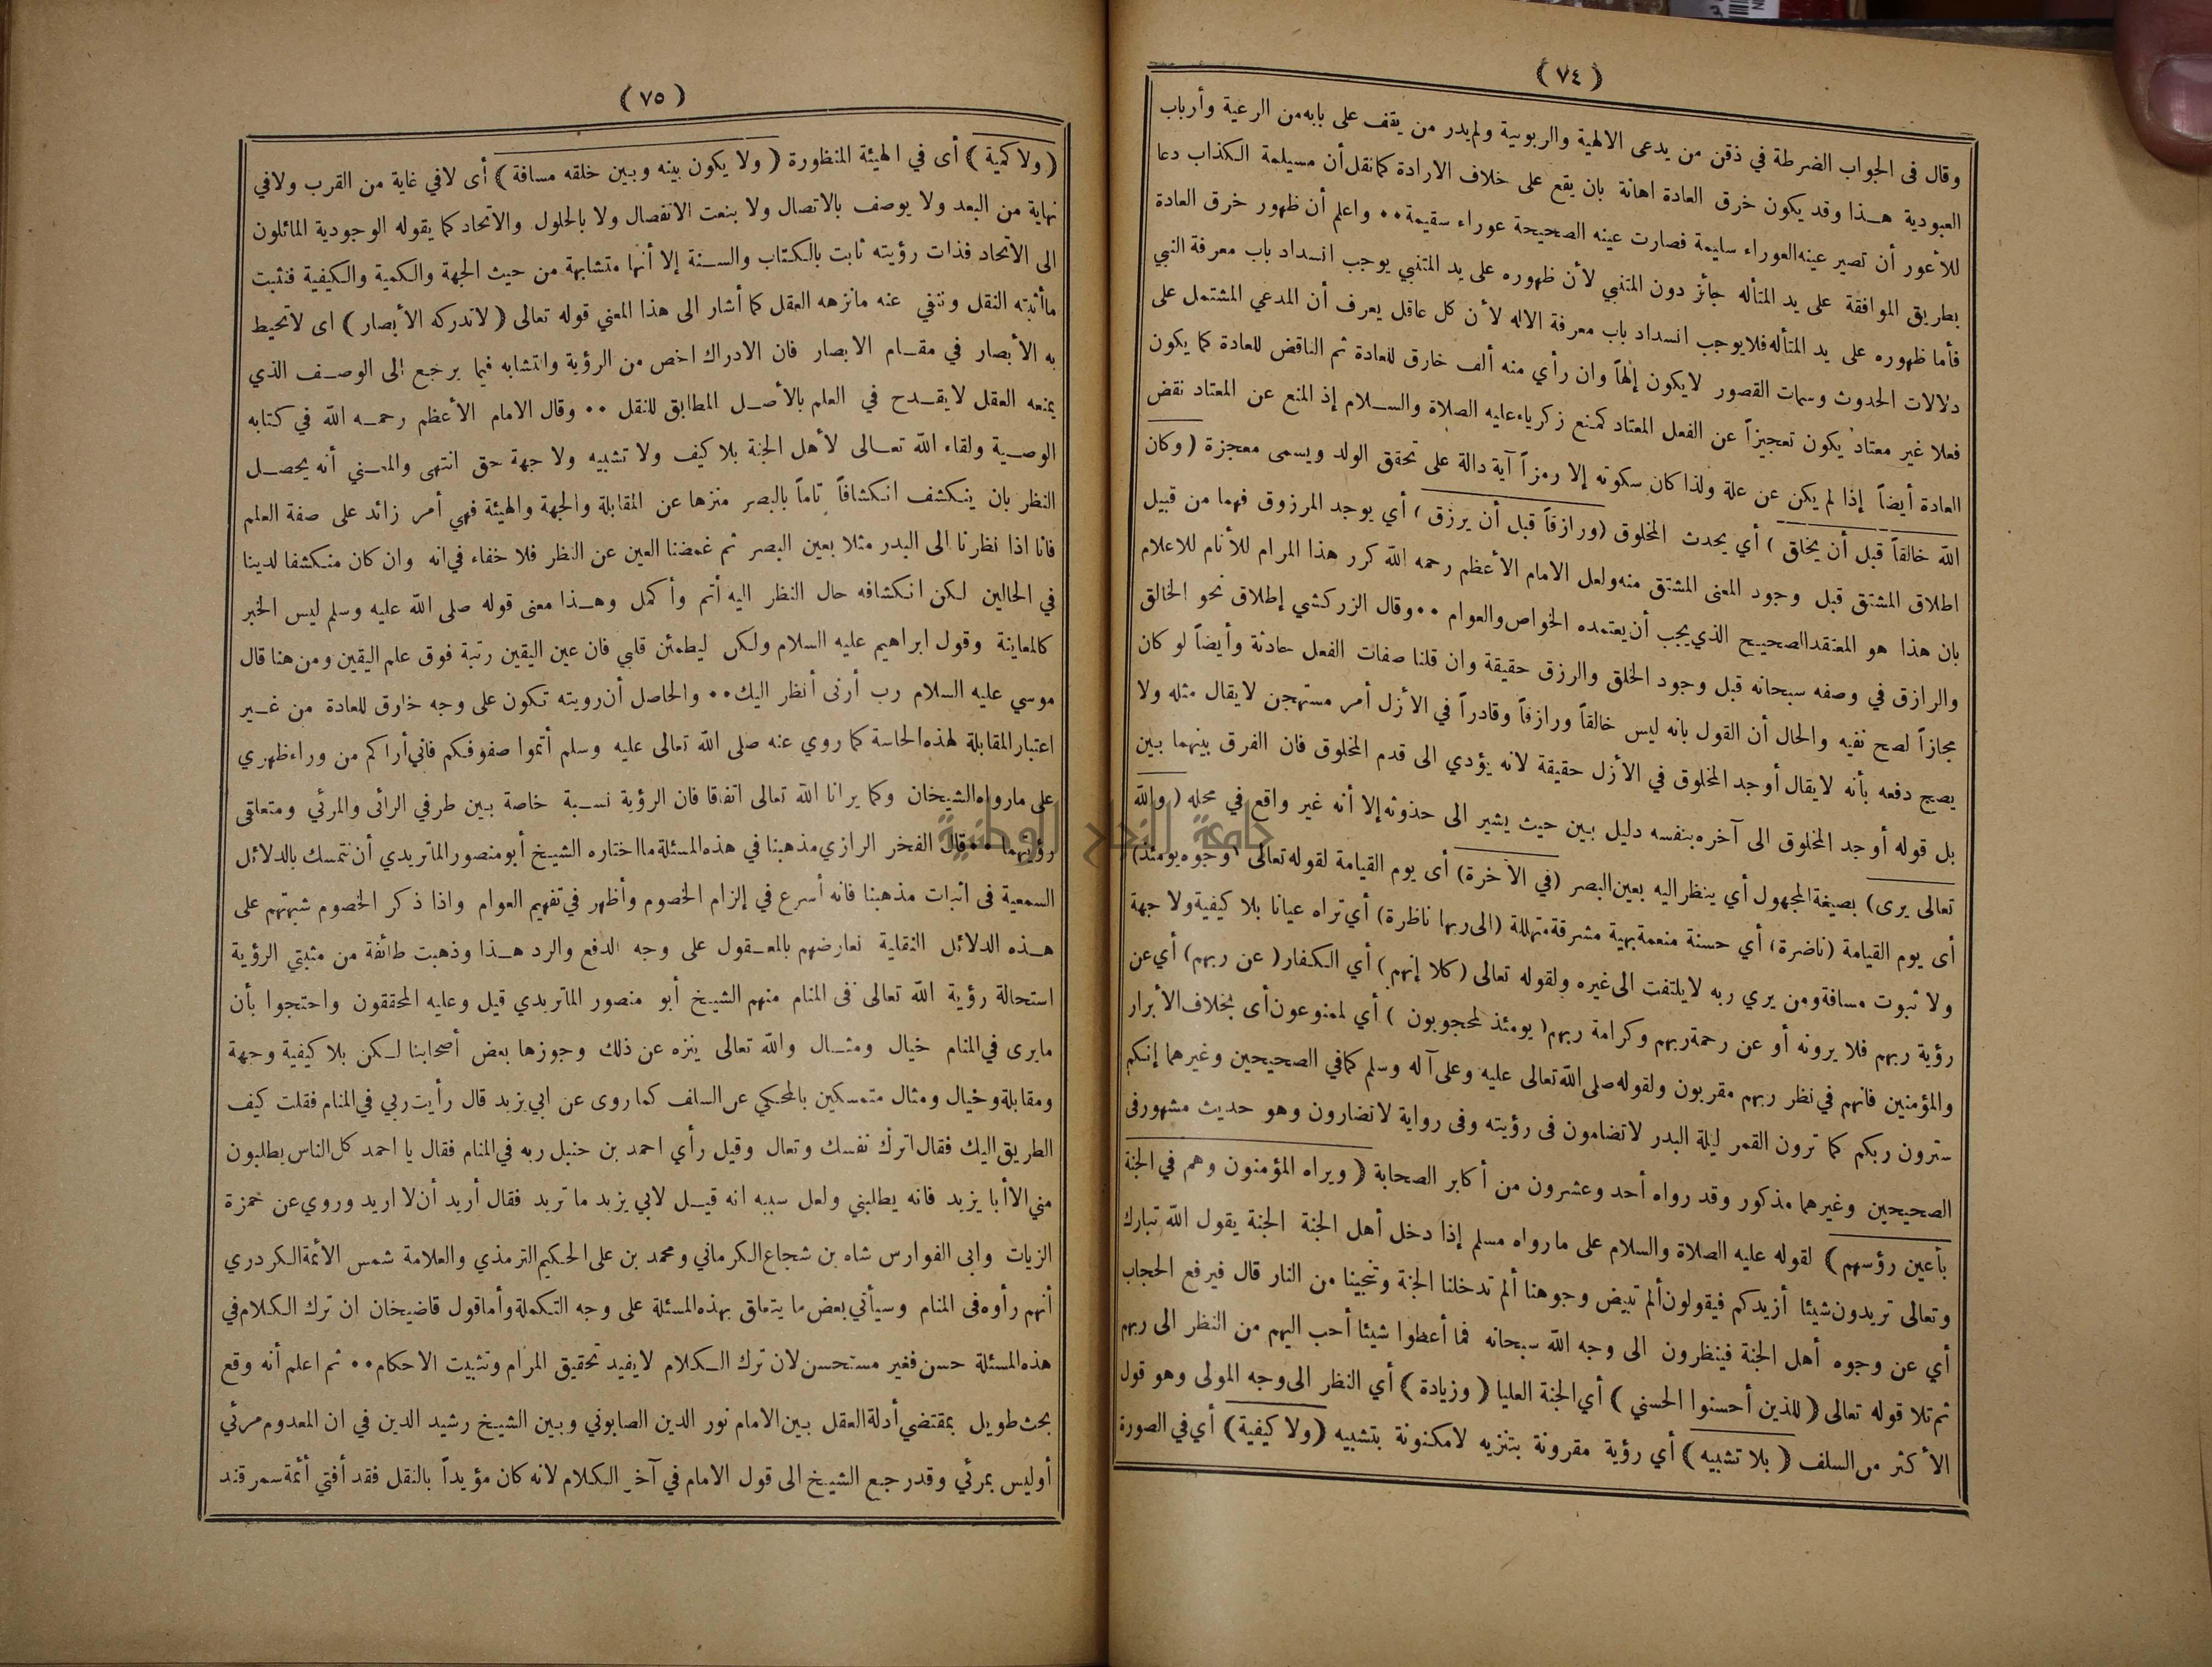 ( ٧٤ )
وقال فى الجواب الضرطة في ذقن من يدعى الالهية والربوبية ولم يدر من يقف على بابه من الرعية وأرباب
العبودية هذا وقد يكون خرق العادة اهانة بان يقع على خلاف الارادة كما نقل أن مسيلمة الكذاب دعا
للأعور أن تصير عينه العوراء سليمة فصارت عينه الصحيحة عوراء سقيمة ٠٠ واعلم أن ظهور خرق العادة
بطريق الموافقة على يد المتأله جائز دون المتنبي لأن ظهوره على يد المتنبي يوجب انسداد باب معرفة النبي
فأما ظهوره على يد المتأله فلا يوجب انسداد باب معرفة الاله لأن كل عاقل يعرف أن المدعي المشتمل على
دلالات الحدوث وسمات القصور لا يكون إلهاً وان رأي منه ألف خارق للعادة ثم الناقض للعادة كما يكون
فعلا غير معتاد يكون تعجيزاً عن الفعل المعتاد كمنع زكرياء عليه الصلاة والسلام إذ المنع عن المعتاد نقض
العادة أيضاً إذا لم يكن عن علة ولذا كان سكوته إلا رمزاً آية دالة على تحقق الولد ويسمى معجزة ( وكان
الله خالقاً قبل أن يخلق ) أي يحدث المخلوق ( ورازقاً قبل أن يرزق ) أي يوجد المرزوق فهما من قبيل
اطلاق المشتق قبل وجود المعنى المشتق منه ولعل الامام الأعظم رحمه الله كرر هذا المرام للأنام للاعلام
بان هذا هو المعتقد الصحيح الذي يجب أن يعتمده الخواص والعوام ٠٠ وقال الزركشي إطلاق نحو الخالق
والرازق في وصفه سبحانه قبل وجود الخلق والرزق حقيقة وان قلنا صفات الفعل حادثة وأيضاً لو كان
مجازاً لصح نفيه والحال أن القول بانه ليس خالقاً ورازقاً وقادراً في الأزل أمر مستهجن لا يقال مثله ولا
يصح دفعه بأنه لا يقال أوجد المخلوق في الأزل حقيقة لانه يؤدي الى قدم المخلوق فان الفرق بينهما بين
بل قوله أوجد المخلوق الى آخره بنفسه دليل بين حيث يشير الى حدوثه إلا أنه غير واقع في محله ( والله
تعالى يرى ) بصيغة المجهول أي ينظر اليه بعين البصر ( في الآخرة ) أى يوم القيامة لقوله تعالى ( وجوه يومئذ )
أى يوم القيامة ( ناضرة ) أي حسنة منعمة بهية مشرقة متهللة ( الى ربها ناظرة ) أي تراه عيانا بلا كيفية ولا جهة
ولا ثبوت مسافة ومن يري ربه لا يلتفت الى غيره ولقوله تعالى ( كلا إنهم ) أي الكفار ( عن ربهم ) أي عن
رؤية ربهم فلا يرونه أو عن رحمة ربهم وكرامة ربهم ( يومئذ لمحجوبون ) أي لممنوعون أى بخلاف الأبرار
والمؤمنين فانهم في نظر ربهم مقربون ولقوله صلى الله تعالى عليه وعلى آله وسلم كما في الصحيحين وغيرهما إنكم
سترون ربكم كما ترون القمر ليلة البدر لا تضامون فى رؤيته وفى رواية لا تضارون وهو حديث مشهور فى
الصحيحين وغيرهما مذكور وقد رواه أحد وعشرون من أكابر الصحابة ( ويراه المؤمنون وهم في الجنة
بأعين رؤسهم ) لقوله عليه الصلاة والسلام على ما رواه مسلم إذا دخل أهل الجنة الجنة يقول الله تبارك
وتعالى تريدون شيئا أزيدكم فيقولون ألم تبيض وجوهنا ألم تدخلنا الجنة وتنجينا من النار قال فيرفع الحجاب
أي عن وجوه أهل الجنة فينظرون الى وجه الله سبحانه فما أعطوا شيئا أحب اليهم من النظر الى ربهم
ثم تلا قوله تعالى ( للذين أحسنوا الحسني ) أي الجنة العليا ( وزيادة ) أي النظر الى وجه المولى وهو قول
الأكثر من السلف ( بلا تشبيه ) أي رؤية مقرونة بتنزيه لا مكنونة بتشبيه ( ولا كيفية ) أي في الصورة
( ٧٥ )
( ولا كمية ) أى في الهيئة المنظورة ( ولا يكون بينه وبين خلقه مسافة ) أى لا في غاية من القرب ولا في
نهاية من البعد ولا يوصف بالاتصال ولا بنعت الانفصال ولا بالحلول والاتحاد كما يقوله الوجودية المائلون
الى الاتحاد فذات رؤيته ثابت بالكتاب والسنة إلا أنها متشابهة من حيث الجهة والكمية والكيفية فنثبت
ما أثبته النقل وننفي عنه ما نزهه العقل كما أشار الى هذا المعني قوله تعالى ( لا تدركه الأبصار ) اى لا تحيط
به الأبصار في مقام الابصار فان الادراك اخص من الرؤية والتشابه فيما يرجع الى الوصف الذي
يمنعه العقل لا يقدح في العلم بالأصل المطابق للنقل ٠٠ وقال الامام الأعظم رحمه الله في كتابه
الوصية ولقاء الله تعالى لأهل الجنة بلا كيف ولا تشبيه ولا جهة حق انتهى والمعني أنه يحصل
النظر بان ينكشف انكشافاً تاماً بالبصر منزها عن المقابلة والجهة والهيئة فهي أمر زائد على صفة العلم
فانا اذا نظرنا الى البدر مثلا بعين البصر ثم غمضنا العين عن النظر فلا خفاء في انه وان كان منكشفا لدينا
في الحالين لكن انكشافه حال النظر اليه أتم وأكمل وهذا معنى قوله صلى الله عليه وسلم ليس الخبر
كالمعاينة وقول ابراهيم عليه السلام ولكن ليطمئن قلبي فان عين اليقين رتبة فوق علم اليقين ومن هنا قال
موسي عليه السلام رب أرنى أنظر اليك ٠٠ والحاصل أن رويته تكون على وجه خارق للعادة من غير
اعتبار المقابلة لهذه الحاسة كما روي عنه صلى الله تعالى عليه وسلم أتموا صفوفكم فاني أراكم من وراء ظهري
على ما رواه الشيخان وكما يرانا الله تعالى اتفاقا فان الرؤية نسبة خاصة بين طرفي الرائى والمرئي ومتعلقى
رؤيتهما ٠٠ قال الفخر الرازي مذهبنا في هذه المسئلة ما اختاره الشيخ أبو منصور الماتريدي أن نتمسك بالدلائل
السمعية فى اثبات مذهبنا فانه أسرع في إلزام الخصوم وأظهر في تفهيم العوام واذا ذكر الخصوم شبهتهم على
هذه الدلائل النقلية نعارضهم بالمعقول على وجه الدفع والرد هذا وذهبت طائفة من مثبتي الرؤية
استحالة رؤية الله تعالى فى المنام منهم الشيخ أبو منصور الماتريدي قيل وعليه المحققون واحتجوا بأن
ما يرى في المنام خيال ومثال والله تعالى ينزه عن ذلك وجوزها بعض أصحابنا لكن بلا كيفية وجهة
ومقابلة وخيال ومثال متمسكين بالمحكي عن السلف كما روى عن ابي يزيد قال رأيت ربي في المنام فقلت كيف
الطريق اليك فقال اترك نفسك وتعال وقيل رأي احمد بن حنبل ربه في المنام فقال يا احمد كل الناس يطلبون
مني الا أبا يزيد فانه يطلبني ولعل سببه انه قيل لابي يزيد ما تريد فقال أريد أن لا اريد وروي عن حمزة
الزيات وابى الفوارس شاه بن شجاع الكرماني ومحمد بن على الحكيم الترمذي والعلامة شمس الأئمة الكردري
أنهم رأوه فى المنام وسيأتي بعض ما يتعلق بهذه المسئلة على وجه التكملة وأما قول قاضيخان ان ترك الكلام في
هذه المسئلة حسن فغير مستحسن لان ترك الكلام لا يفيد تحقيق المرام وتثبيت الاحكام ٠٠ ثم اعلم أنه وقع
بحث طويل بمقتضي أدلة العقل بين الامام نور الدين الصابوني وبين الشيخ رشيد الدين في ان المعدوم مرئي
أو ليس بمرئي وقد رجع الشيخ الى قول الامام في آخر الكلام لانه كان مؤيداً بالنقل فقد أفتي أئمة سمرقند
جامعة النجاح الوطنية